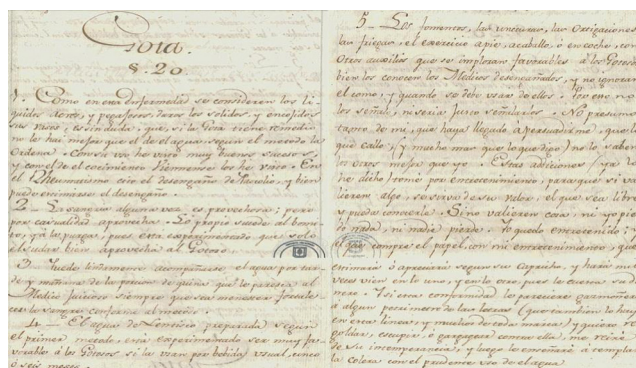 Gota.
§. 20
1. Como en esta Enfermedad se consideren los li-
quidos lentos, y pegajosos, duros los solidos, y encogidos
sus vasos; es sin duda, que, si la Gota tiene remedio
no lo hai mejor que el de el agua, segun el metodo la
Ordena. Con su uso he visto muy buenos sucesos
y con el de el cocimiento
el Rheumatismo con el desengaño de
puede encimarse el desengaño.
2. La sangria alguna vez es provechosa; pero
por casualidad aprovecha. Lo propio sucede al
y a la purga, pues está experimentado que solo
el sudar bien aprovecha al Gotoso.
3. Puede lindamente acompañarse el agua por tar-
de, y mañana de la quina que lo parezca al
Medico Juicioso siempre que
4. El agua de Lentisco preparada segun
el primer metodo, está experimentado ser muy fa-
vorable á los Gotosos si la usan por bebida usual, cinco
ó seis meses.
5. Los fomentos, las unturas, las Ortigaciones
las friegas, el exercicio á pie, á caballo, ó en coche, con
otros auxilios que se imploran favorables á los Gotosos
bien los conocen los Medicos desengañados, y no ignoran
el como, y quando se debe usar de ellos. Por eso no
los señalo, ni seria Justo señalarlos. No presumo
tanto de mi, que haya llegado á persuadirme, que lo
que callo, (y mucho mas que lo que digo) no lo saben
otros mejor que yo. Estas adiciones (ya lo
he dicho) tomé por entretenimiento, para que si va-
lieren algo, se sirva de su valor, el que sea libre
y pueda conocerlo. Si no valieren cosa, ni yo pier-
do nada, ni nadie pierde. Yo quedo entretenido; y
el que compre el papel, con mi entretenimiento, que
estimará ó apreciará segun su Capricho, y hará mu-
veces bien en lo uno, y en lo otro, pues le cuesta su di-
. Si esta conformidad lo
á algun de las letras (que tambien lo hay
en esta linea, y muchos de toda marca) y quiere re-
goldar, escupir, ó gargagear contra ella, me reiré
de su intemperancia, y luego le enseñaré á templar
la colera con el prudente uso de el agua.